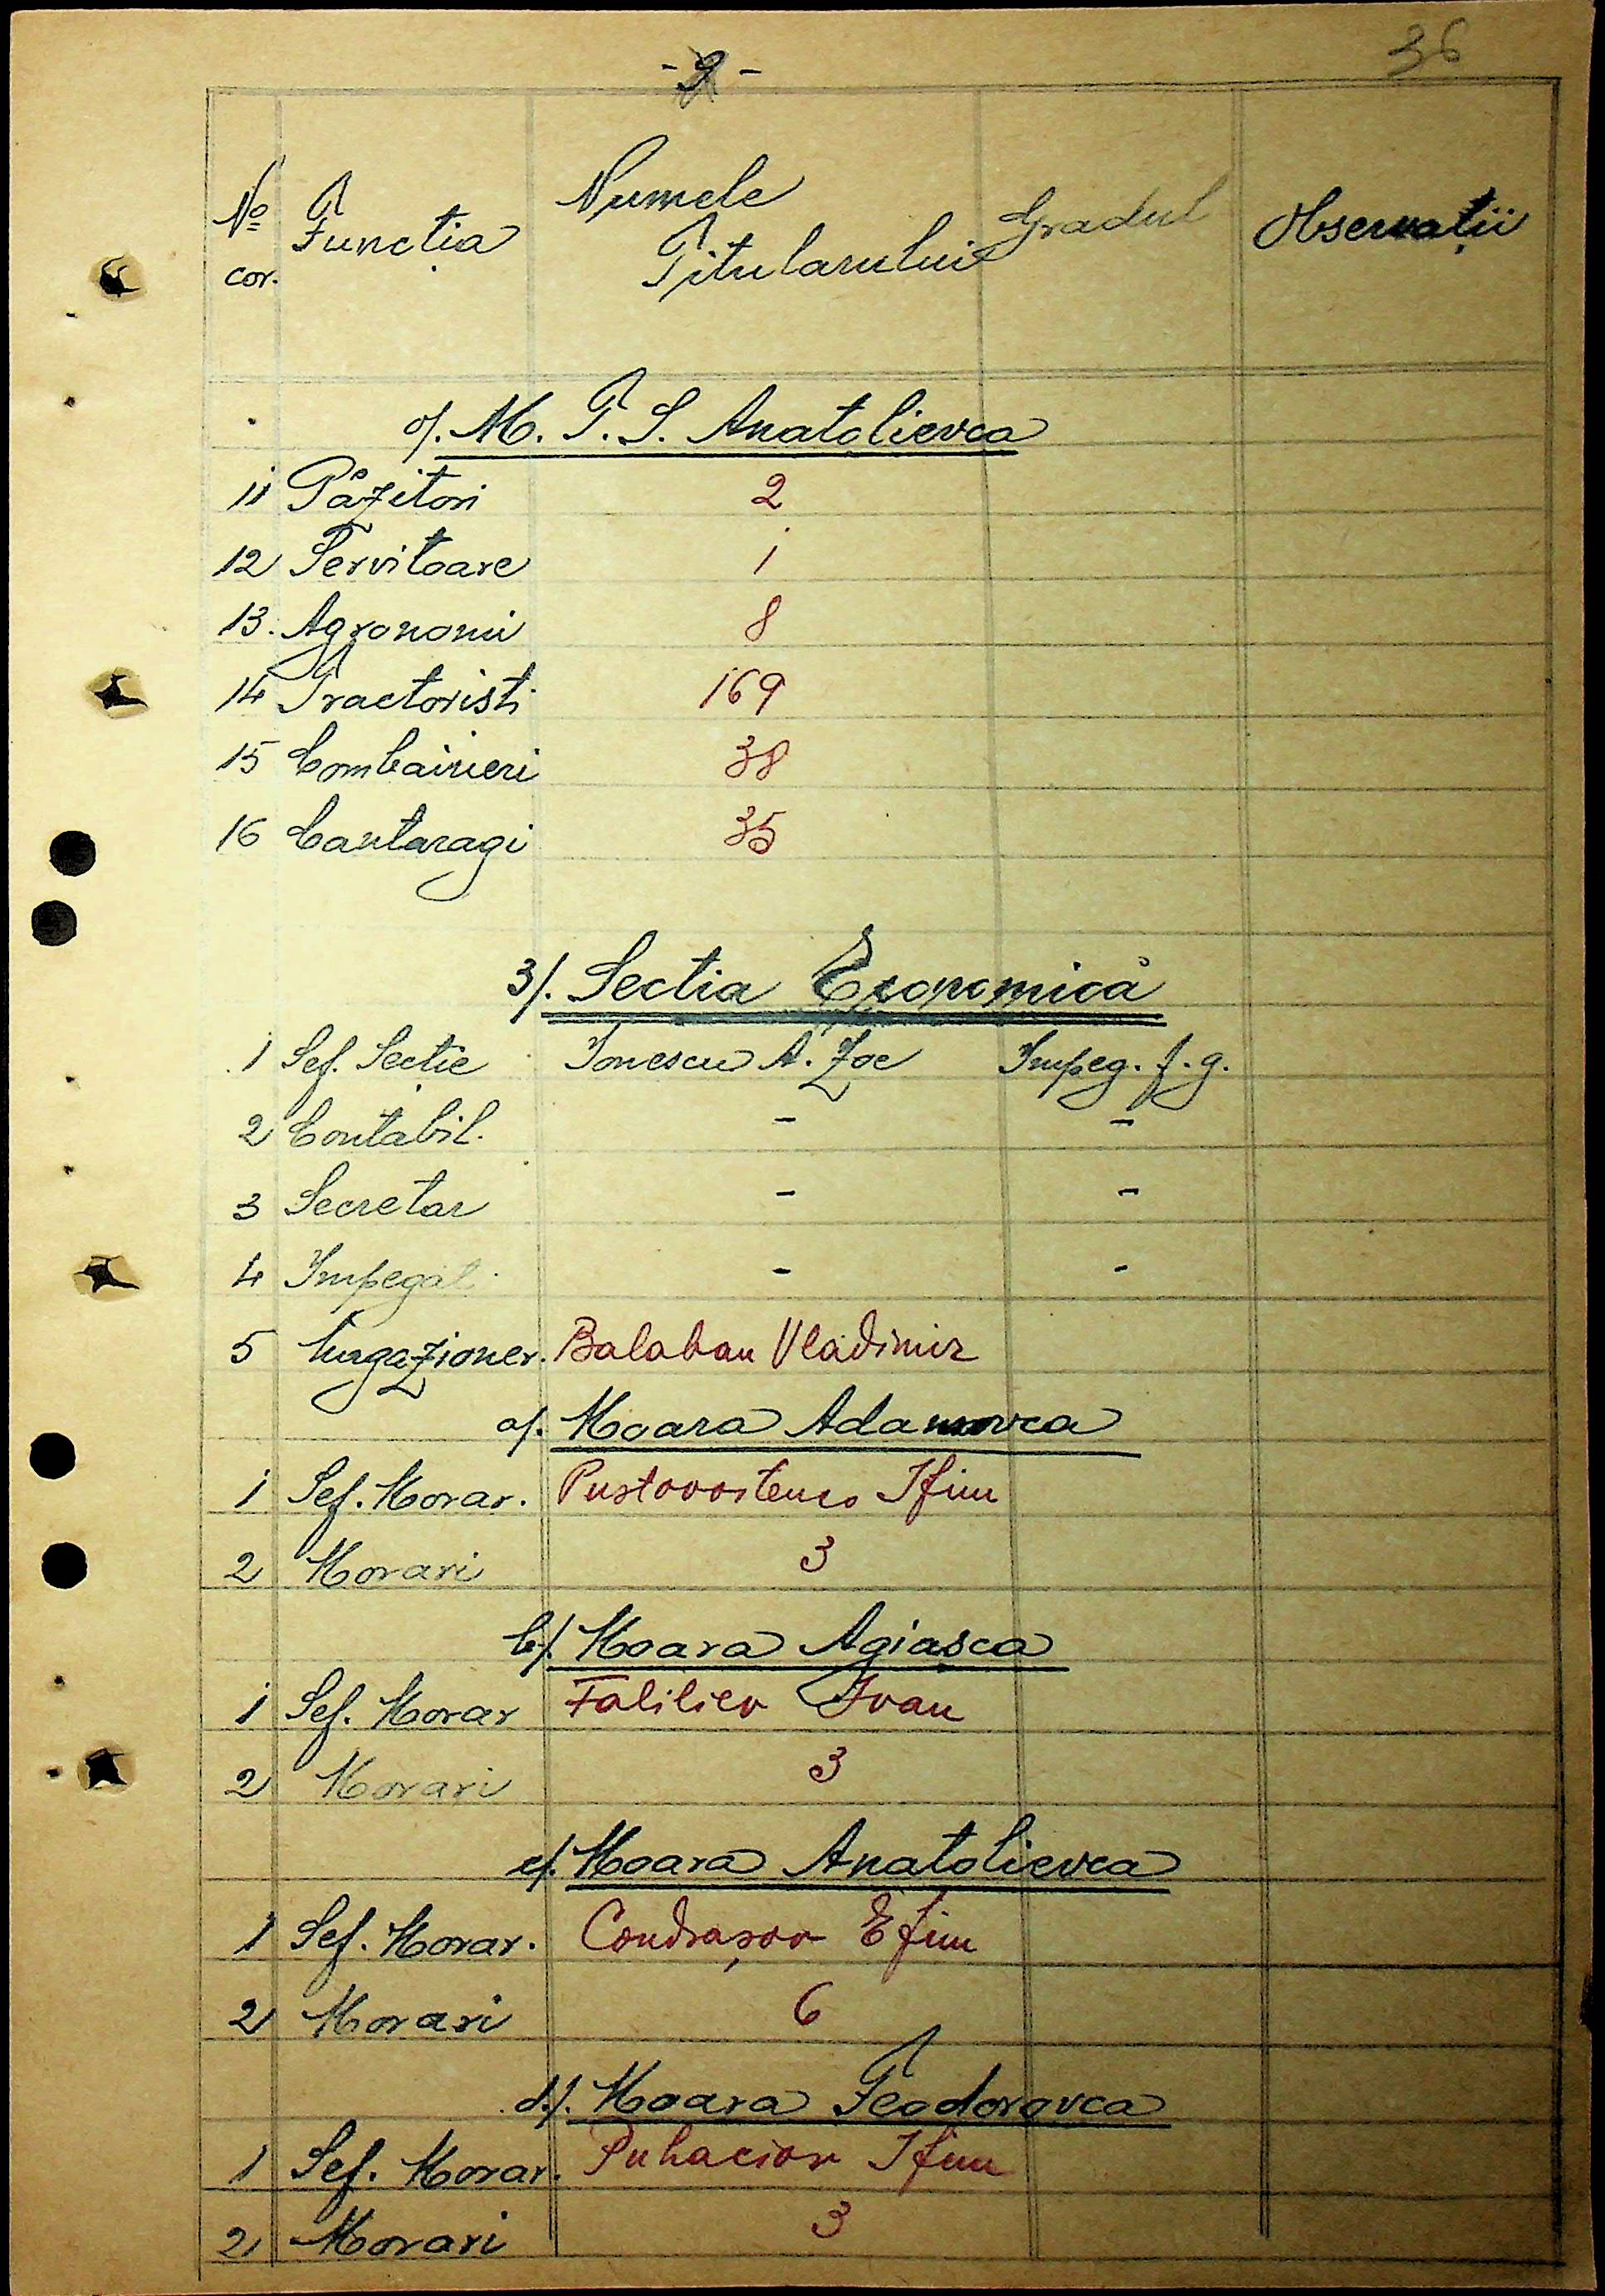 36
- 9 -
No cor. Functia Numele Titularului Gradul Observații
a/. M. T. S. Anatolievca
11 Păzitori 2
12 Servitoare 1
13. Agronomi 8
14 Tractoristi 169
15 Combainieri 38
16 Cantaragi 35
3/. Sectia Economică
1 Sef. Secție Ionescu A. Zoe Impeg. f. g.
2 Contabil. - -
3 Secretar - -
4 Impegat. - -
5 Magazioner. Balaban Vladimir
a/. Moara Adamovca
1 Sef. Morar. Pustovoitenco Ifim
2 Morari 3
b/. Moara Agiasca
1 Sef. Morar Faliliev Ivan
2 Morari 3
c/. Moara Anatolievca
1 Sef. Morar. Condrașov Efim
2 Morari 6
d/. Moara Teodorovca
1 Sef. Morar. Puhaciov Ifim
2 Morari 3